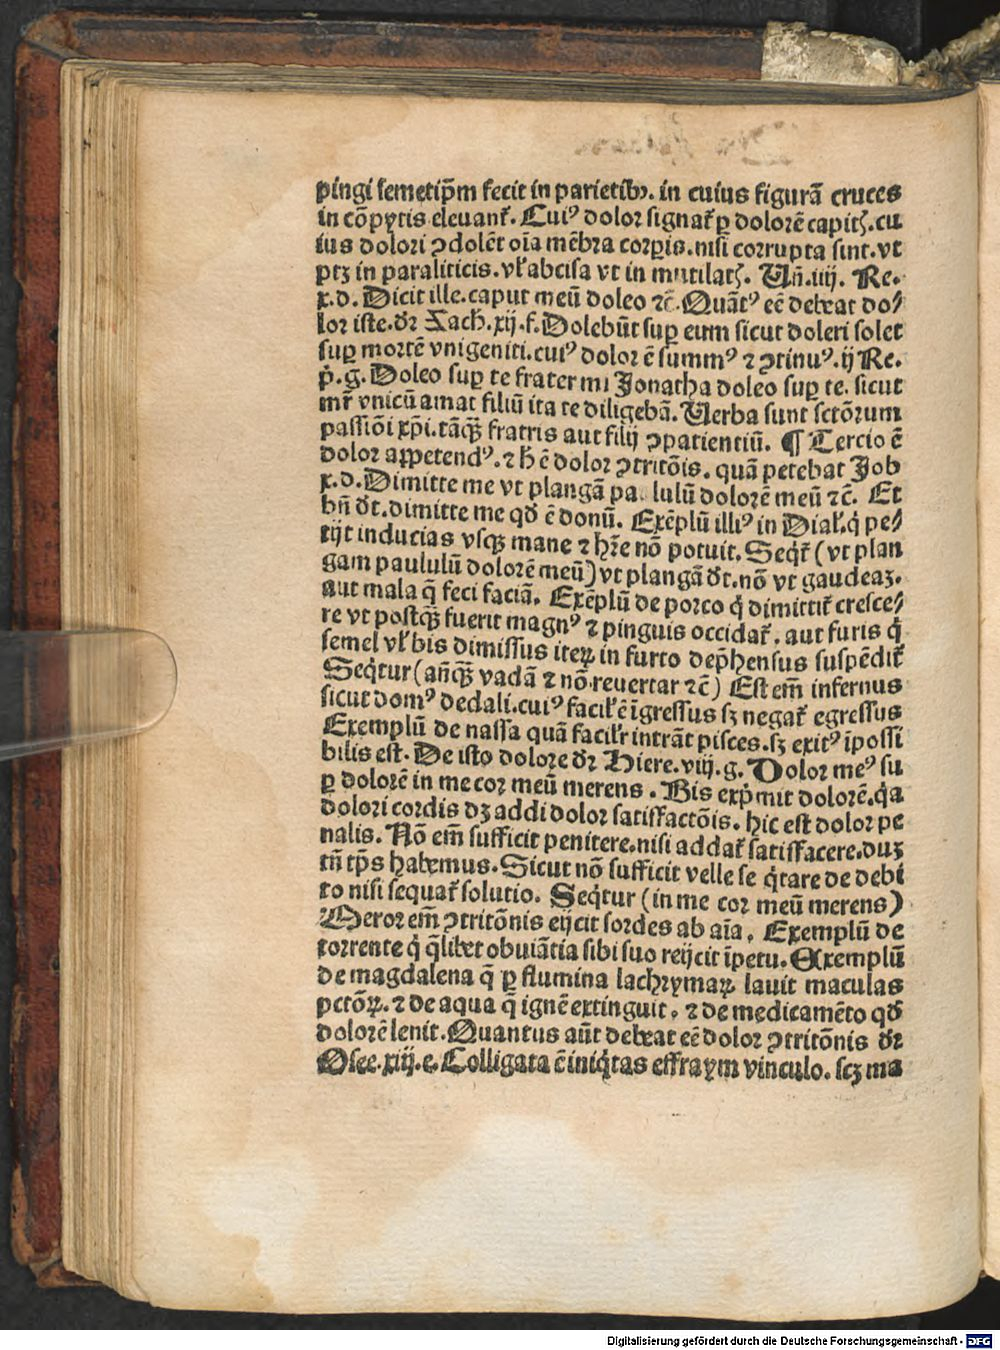 pingi semetip̄m fecit in parietibꝰ. in cuius figurā cruces
in cōpytis eleuant᷑. Cuiꝰ dolor signat᷑ ꝑ dolorē capitꝭ. cu
ius dolori ꝯdolēt oīa mēbra corꝑis. nisi corrupta sint. vt
ptꝫ in paraliticis. vl̓ abcisa vt in mutilatꝭ. Uñ. iiij. Re.
x. d. Dicit ille. caput meū doleo ⁊c̄. Quātꝰ eē debeat do⸗
lor iste. dr̄ Zach. xij. f. Dolebūt suꝑ eum sicut doleri solet
suꝑ mortē vnigeniti. cuiꝰ dolor ē summꝰ ⁊ ꝯtinuꝰ. ij Re.
p̄. g. Doleo suꝑ te frater mi Jonatha doleo suꝑ te. sicut
mr̄ vnicū amat filiū ita te diligebā. Uerba sunt sctōrum
passiōi xp̄i. tāqꝫ̄ fratris aut filij ꝯpatientiū. ¶ Tercio ē
dolor appetendꝰ. ⁊ h̄ ē dolor ꝯtritōis. quā petebat Job
x. d. Dimitte me vt plangā pa lulū dolorē meū ⁊c̄. Et
bn̄ dt. dimitte me qd̄ ē donū. Exēplū illiꝰ in Dial̓. q̇ pe⸗
tijt inducias vsqꝫ mane ⁊ hr̄e nō potuit. Seqt᷑ (vt plan
gam paululū dolorē meū) vt plangā dt. nō vt gaudeaꝫ.
aut mala q̄ feci faciā. Exēplū de porco q̇ dimittit᷑ cresce⸗
re vt postqꝫ̄ fuerit magnꝰ ⁊ pinguis occidat᷑. aut furis q̇
semel vl̓ bis dimissus iteꝝ in furto dep̄hensus suspēdit᷑
Seq̇tur (añqꝫ̄ vadā ⁊ nō reuertar ⁊c̄) Est em̄ infernus
sicut domꝰ dedali. cuiꝰ facil̓ ē īgressus sꝫ negat᷑ egressus
Exemplū de nassa quā facil̓r intrāt pisces. sꝫ exitꝰ īpossi
bilis est. De isto dolore dr̄ Hiere. viij. g. Dolor meꝰ su
ꝑ dolorē in me cor meū merens. Bis exp̄mit dolorē. q̇a
dolori cordis dꝫ addi dolor satisfactōis. hic est dolor pe
nalis. Nō em̄ sufficit penitere. nisi addat᷑ satisfacere. duꝫ
tn̄ tp̄s habemus. Sicut nō sufficit velle se q̇tare de debi
to nisi sequat᷑ solutio. Seq̇tur (in me cor meū merens)
Meror em̄ ꝯtritōnis eijcit sordes ab aīa. Exemplū de
torrente q̇ q̄libet obuiātia sibi suo reijcit īpetu. Exemplū
de magdalena q̄ ꝑ flumina lachrymaꝝ lauit maculas
pctōꝝ. ⁊ de aqua q̄ ignē extinguit. ⁊ de medicamēto qd̄
dolorē lenit. Quantus aūt debeat eē dolor ꝯtritōnis dr̄
Osee. xiij. e. Colligata ē iniq̇tas effraym vinculo. scꝫ ma
Digitalisierung gefördert durch die Deutsche Forschungsgemeinschaft - DFG